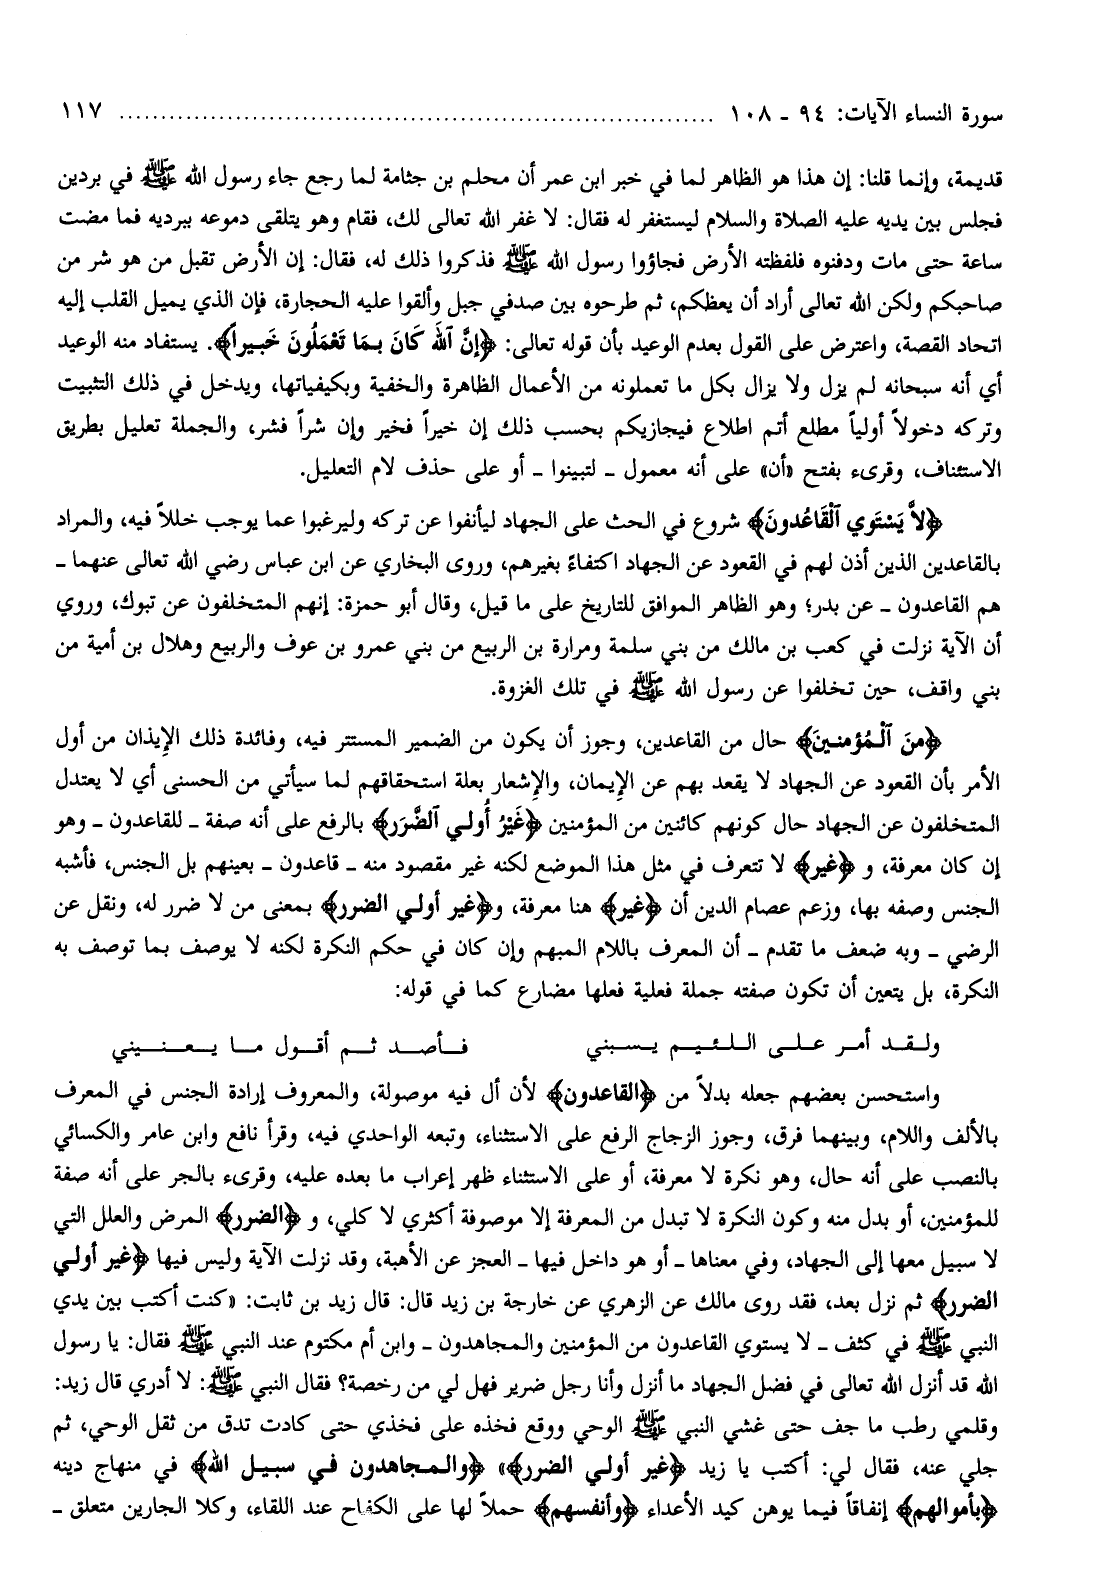 سورة النساء الآيات: ٩٤ ـ ١٠٨ ........................................................................ ١١٧
قديمة، وإنما قلنا: إن هذا هو الظاهر لما في خبر ابن عمر أن محلم بن جثامة لما رجع جاء رسول الله ﷺ في بردين
فجلس بين يديه عليه الصلاة والسلام ليستغفر له فقال: لا غفر الله تعالى لك، فقام وهو يتلقى دموعه ببرديه فما مضت
ساعة حتى مات ودفنوه فلفظته الأرض فجاؤوا رسول الله ﷺ فذكروا ذلك له، فقال: إن الأرض تقبل من هو شر من
صاحبكم ولكن الله تعالى أراد أن يعظكم، ثم طرحوه بين صدفي جبل وألقوا عليه الحجارة، فإن الذي يميل القلب إليه
اتحاد القصة، واعترض على القول بعدم الوعيد بأن قوله تعالى: ﴿إِنَّ ٱللهَ كَانَ بِمَا تَعْمَلُونَ خَبِيراً﴾. يستفاد منه الوعيد
أي أنه سبحانه لم يزل ولا يزال بكل ما تعملونه من الأعمال الظاهرة والخفية وبكيفياتها، ويدخل في ذلك التثبيت
وتركه دخولاً أولياً مطلع أتم اطلاع فيجازيكم بحسب ذلك إن خيراً فخير وإن شراً فشر، والجملة تعليل بطريق
الاستئناف، وقرىء بفتح «أن» على أنه معمول ـ لتبينوا ـ أو على حذف لام التعليل.
﴿لاَّ يَسْتَوِي ٱلْقَاعُدونَ﴾ شروع في الحث على الجهاد ليأنفوا عن تركه وليرغبوا عما يوجب خللاً فيه، والمراد
بالقاعدين الذين أذن لهم في القعود عن الجهاد اكتفاءً بغيرهم، وروى البخاري عن ابن عباس رضي الله تعالى عنهما ـ
هم القاعدون ـ عن بدر؛ وهو الظاهر الموافق للتاريخ على ما قيل، وقال أبو حمزة: إنهم المتخلفون عن تبوك، وروي
أن الآية نزلت في كعب بن مالك من بني سلمة ومرارة بن الربيع من بني عمرو بن عوف والربيع وهلال بن أمية من
بني واقف، حين تخلفوا عن رسول الله ﷺ في تلك الغزوة.
﴿مِنَ ٱلْمُؤمنِينَ﴾ حال من القاعدين، وجوز أن يكون من الضمير المستتر فيه، وفائدة ذلك الإيذان من أول
الأمر بأن القعود عن الجهاد لا يقعد بهم عن الإيمان، والإشعار بعلة استحقاقهم لما سيأتي من الحسنى أي لا يعتدل
المتخلفون عن الجهاد حال كونهم كائنين من المؤمنين ﴿غَيْرُ أُولي ٱلضَّرَرِ﴾ بالرفع على أنه صفة ـ للقاعدون ـ وهو
إن كان معرفة، و ﴿غير﴾ لا تتعرف في مثل هذا الموضع لكنه غير مقصود منه ـ قاعدون ـ بعينهم بل الجنس، فأشبه
الجنس وصفه بها، وزعم عصام الدين أن ﴿غير﴾ هنا معرفة، و﴿غير أولي الضرر﴾ بمعنى من لا ضرر له، ونقل عن
الرضي ـ وبه ضعف ما تقدم ـ أن المعرف باللام المبهم وإن كان في حكم النكرة لكنه لا يوصف بما توصف به
النكرة، بل يتعين أن تكون صفته جملة فعلية فعلها مضارع كما في قوله:
ولقد أمر على اللئيم يسبني فأصد ثم أقول ما يعنيني
واستحسن بعضهم جعله بدلاً من ﴿القاعدون﴾ لأن أل فيه موصولة، والمعروف إرادة الجنس في المعرف
بالألف واللام، وبينهما فرق، وجوز الزجاج الرفع على الاستثناء، وتبعه الواحدي فيه، وقرأ نافع وابن عامر والكسائي
بالنصب على أنه حال، وهو نكرة لا معرفة، أو على الاستثناء ظهر إعراب ما بعده عليه، وقرىء بالجر على أنه صفة
للمؤمنين، أو بدل منه وكون النكرة لا تبدل من المعرفة إلا موصوفة أكثري لا كلي، و ﴿الضرر﴾ المرض والعلل التي
لا سبيل معها إلى الجهاد، وفي معناها ـ أو هو داخل فيها ـ العجز عن الأهبة، وقد نزلت الآية وليس فيها ﴿غير أولي
الضرر﴾ ثم نزل بعد، فقد روى مالك عن الزهري عن خارجة بن زيد قال: قال زيد بن ثابت: «كنت أكتب بين يدي
النبي ﷺ في كثف ـ لا يستوي القاعدون من المؤمنين والمجاهدون ـ وابن أم مكتوم عند النبي ﷺ فقال: يا رسول
الله قد أنزل الله تعالى في فضل الجهاد ما أنزل وأنا رجل ضرير فهل لي من رخصة؟ فقال النبي ﷺ: لا أدري قال زيد:
وقلمي رطب ما جف حتى غشي النبي ﷺ الوحي ووقع فخذه على فخذي حتى كادت تدق من ثقل الوحي، ثم
جلي عنه، فقال لي: أكتب يا زيد ﴿غير أولي الضرر﴾» ﴿والمجاهدون في سبيل الله﴾ في منهاج دينه
﴿بأموالهم﴾ إنفاقاً فيما يوهن كيد الأعداء ﴿وأنفسهم﴾ حملاً لها على الكفاح عند اللقاء، وكلا الجارين متعلق ـ